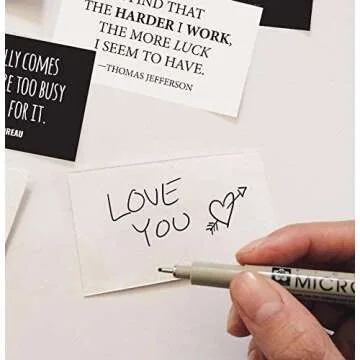 FIND THAT
THE HARDER I WORK,
THE MORE LUCK
I SEEM TO HAVE.
—THOMAS JEFFERSON
COMES
TOO BUSY
FOR IT.
LOVE
YOU